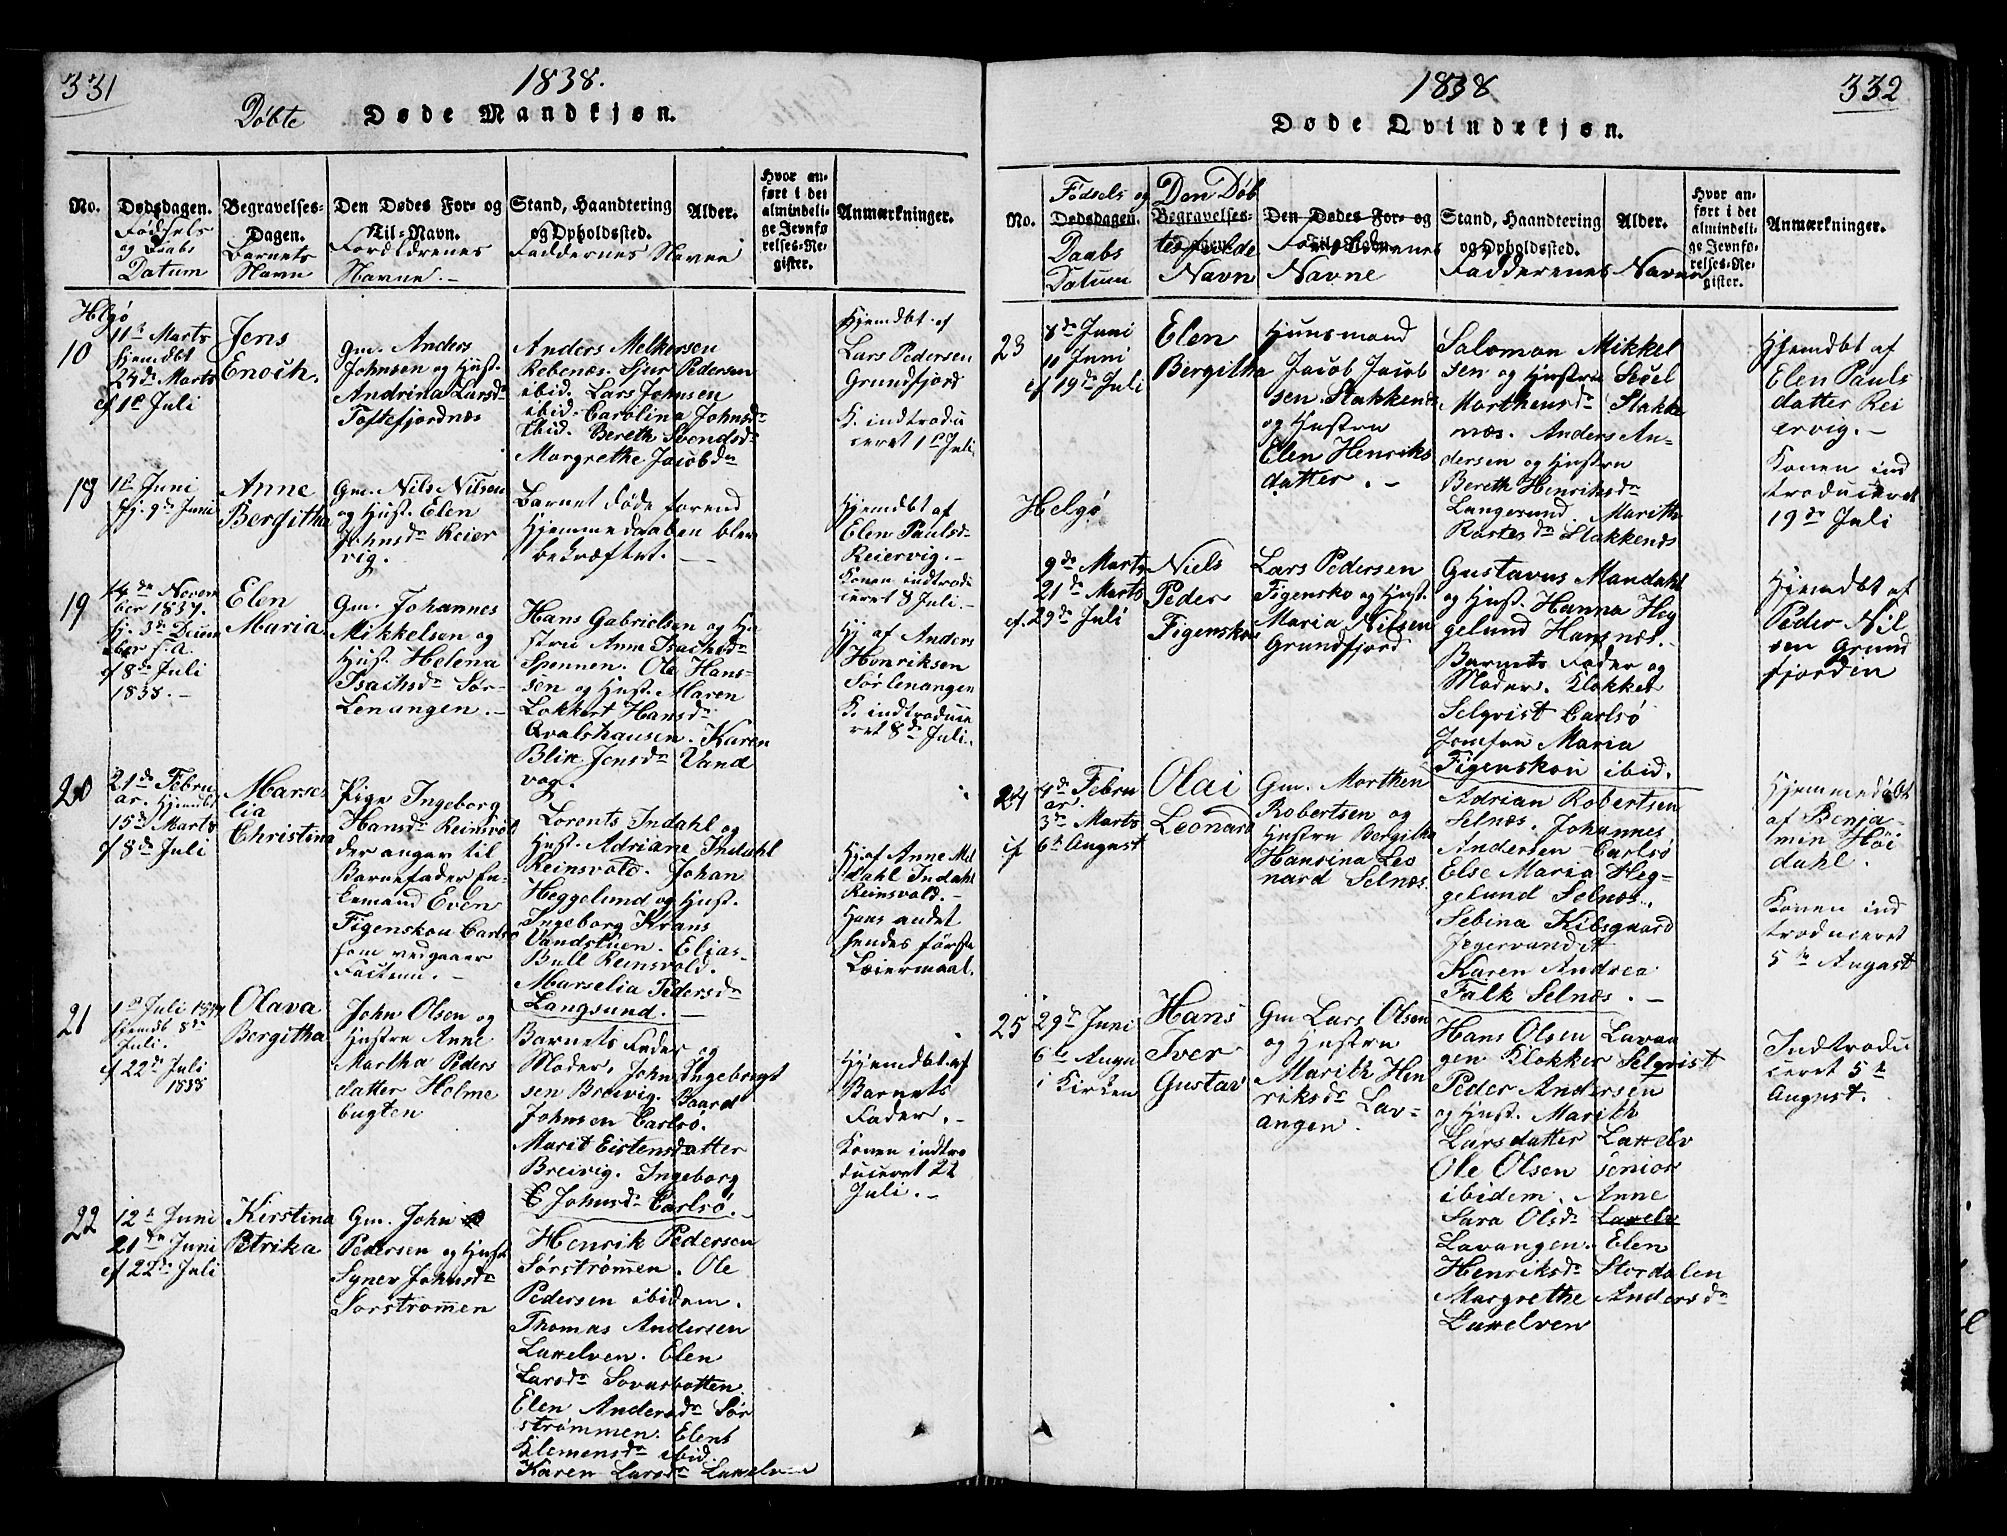 331
1838.
Døbte Døde Mandkjøn.
No.
Dødsdagen.
Fødsels
og Daabs
Datum
Begravelses-
Dagen.
Barnets
Navn
Den Dødes For- og
Til-Navn.
Forældrenes
Navne.-
Stand, Haandtering
og Opholdssted.
Faddernes Navne
Alder.
Hvor an-
ført i det
almindeli-
ge Jevnfø-
relses-Re-
gister.
Anmærkninger.
Helgø
10
11te Marts
Hjemdbt
25de Marts
cf 1ste Juli
Jens
Enoch.
Gm. Anders
Johnsen og Hust.
Andrina Larsdr
Toftefjordnæs
Anders Melkersen
Rebenæs. Sjur Pedersen
ibid. Lars Johnsen
ibid. Carolina Johnsdr
ibid. Bereth Svendsdr
Margrethe Jacobdr
Hjemdbt af
Lars Pedersen
Grundfjord
K. indtrodu
ceret 1ste Juli
18
1ste Juni
Hj. 9de Juni
Anne
Bergitha
Gm. Nils Nilsen
og Hust. Elen
Johnsdr Reier
vig.
Barnet døde forend
Hjemmedaaben blev
bekræftet.
Hjemdbt af
Elen Paulsdr
Reiervig.-
Konen indtrodu
ceret 8 Juli.-
19
14de Novem
ber 1837.
Hj. 3de Decem
ber s. a.
cf 8de Juli
1838.-
Elen
Maria
Gm. Johannes
Mikkelsen og
Hust. Helena
Isachsdr Sør-
Lenangen.-
Hans Gabrielsen og Hu
stru Anne Isachsdr
Spennen. Ole Hans-
sen og Hust. Maren
Lokkert Hansdr
Qvalshausen. Karen
Blix Jensdr Vand
vag.
Hj af Anders
Henriksen
Sørlenangen
K. indtroduce
ret 8de Juli.
20
21de Febru
ar. Hjemdbt
15de Marts
cf 8de Juli
Marse
lia
Christina
Pige Ingeborg
Hansdr Reinsvold
der angav til
Barnefader En-
kemand Even
Figenskou Carlsø
som vedgaaer
Factum.-
Lorents Indahl og
Hust. Adriane Indahl
Reinsvold. Johan
Heggelund og Hust.
Ingeborg Krans
Vandstuen. Elias
Bull Reinsvold.
Marselia Pedersdr
Langsund.-
Hj af Anne Mel
dahl Indahl
Reinsvold.-
Hans andet
hendes første
Leiermaal.
21
1ste Juli 1837
Hjemdbt 8de
Juli.
cf 22de Juli
1838
Olava
Bergitha
John Olsen og
Hustru Anne
Martha Peders
datter Holme
bugten
Barnets Fader og
Moder, John Ingebregt
sen Breivig. Baard
Johnsen Carlsø.
Marit Eistensdatter
Breivig. Ingeborg
C Johnsdr Carlsø.-
Hjemdbt af
Barnets
Fader.-
Konen indtro
duceret 22
Juli.-
22
12te Juni
21de Juni
cf 22de Juli
Kirstina
Petrika
Gm. John
Pedersen og Hust
Synev Johnsdr
Sørstrømen
Henrik Pedersen
Sørstrømen. Ole
Pedersen ibidem.
Thomas Andersen
Laxelven. Elen
Larsdr Sovusbotten
Elen Andersdr Sør
strømmen. Elens
Klemensdr ibid.
Karen Larsdr Laxelven
1838
332
Døde Qvindekjøn.
No.
Fødsels og
Dødsdagen.
Daabs
Datum
Den Døb
Begravelses-
tes fulde
Navn
Den Dødes For- og
Forældrenes
Navne
Stand, Haandtering
og Opholdssted.
Faddernes Navne
Alder.
Hvor an-
ført i det
almindeli-
ge Jevnfø-
relses-Re-
gister.
Anmærkninger.
23
8de Juni
11 Juni
cf 19de Juli
Elen
Bergitha
Huusmand
Jacob Jacob
sen Stakkenæs
og Hustru
Elen Henriks
datter.-
Salomon Mikkel
sen og Hustru Sedel
Marthensdr Stakke
næs. Anders An-
dersen og Hustru
Bereth Henriksdr
Langesund Marith
Rastesdr Stakkenæs
Hjemdbt af
Elen Pauls
datter Rei
ervig.-
Konen ind
troduceret
19de Juli
Helgø
9de Marts
21de Marts
cf. 29de Juli
Niels
Peder
Figenskou
Lars Pedersen
Figensko og Hust.
Maria Nilsen
Grundfjord
Gustavus Mandahl
og Hust. Hanna Heg
gelund Hansnæs.-
Barnets Fader og
Moder. Klokker
Selqvist Carlsø
Jomfru Maria
Figenskou ibid.
Hjemdbt af
Peder Nil
sen Grund
fjorden
24
4de Febru
ar.
3de Marts
cf 6te August
Olai
Leonard
Gm. Morthen
Robertsen og
Hustru Bergitha
Hansina Leo
nard Selnæs.
Adrian Robertsen
Selnæs. Johannes
Andersen Carlsø
Else Maria Heg-
gelund Selnæs.
Sebina Kilsgaard
Jegervandet
Karen Andrea
Falk Selnæs.-
Hjemmedøbt
af Benja-
min Høi
dahl.
Konen ind
troduceret
5te August
25
29de Juni
6te Augu
i Kirken
Hans
Iver
Gustav
Gm Lars Olsen
og Hustru
Marith Hen
riksdr Lav-
angen.
Hans Olsen Lavan
gen Klokker Selqvist
Peder Andersen
og Hust. Marith
Larsdatter Laxelv
Ole Olsen senior
ibidem. Anne
Sara Olsdr Laxelv
Lavangen. Elen
Henriksdr Stordalen
Margrethe Andersdr
Laxelven
Indtrodu
ceret 5te
August.